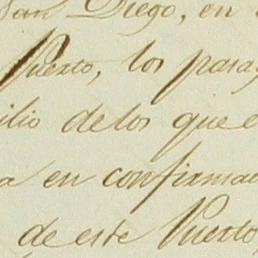 San Diego, en
Puerto, los parag
ilio de los que e
a en confirmac
de este Puerto,